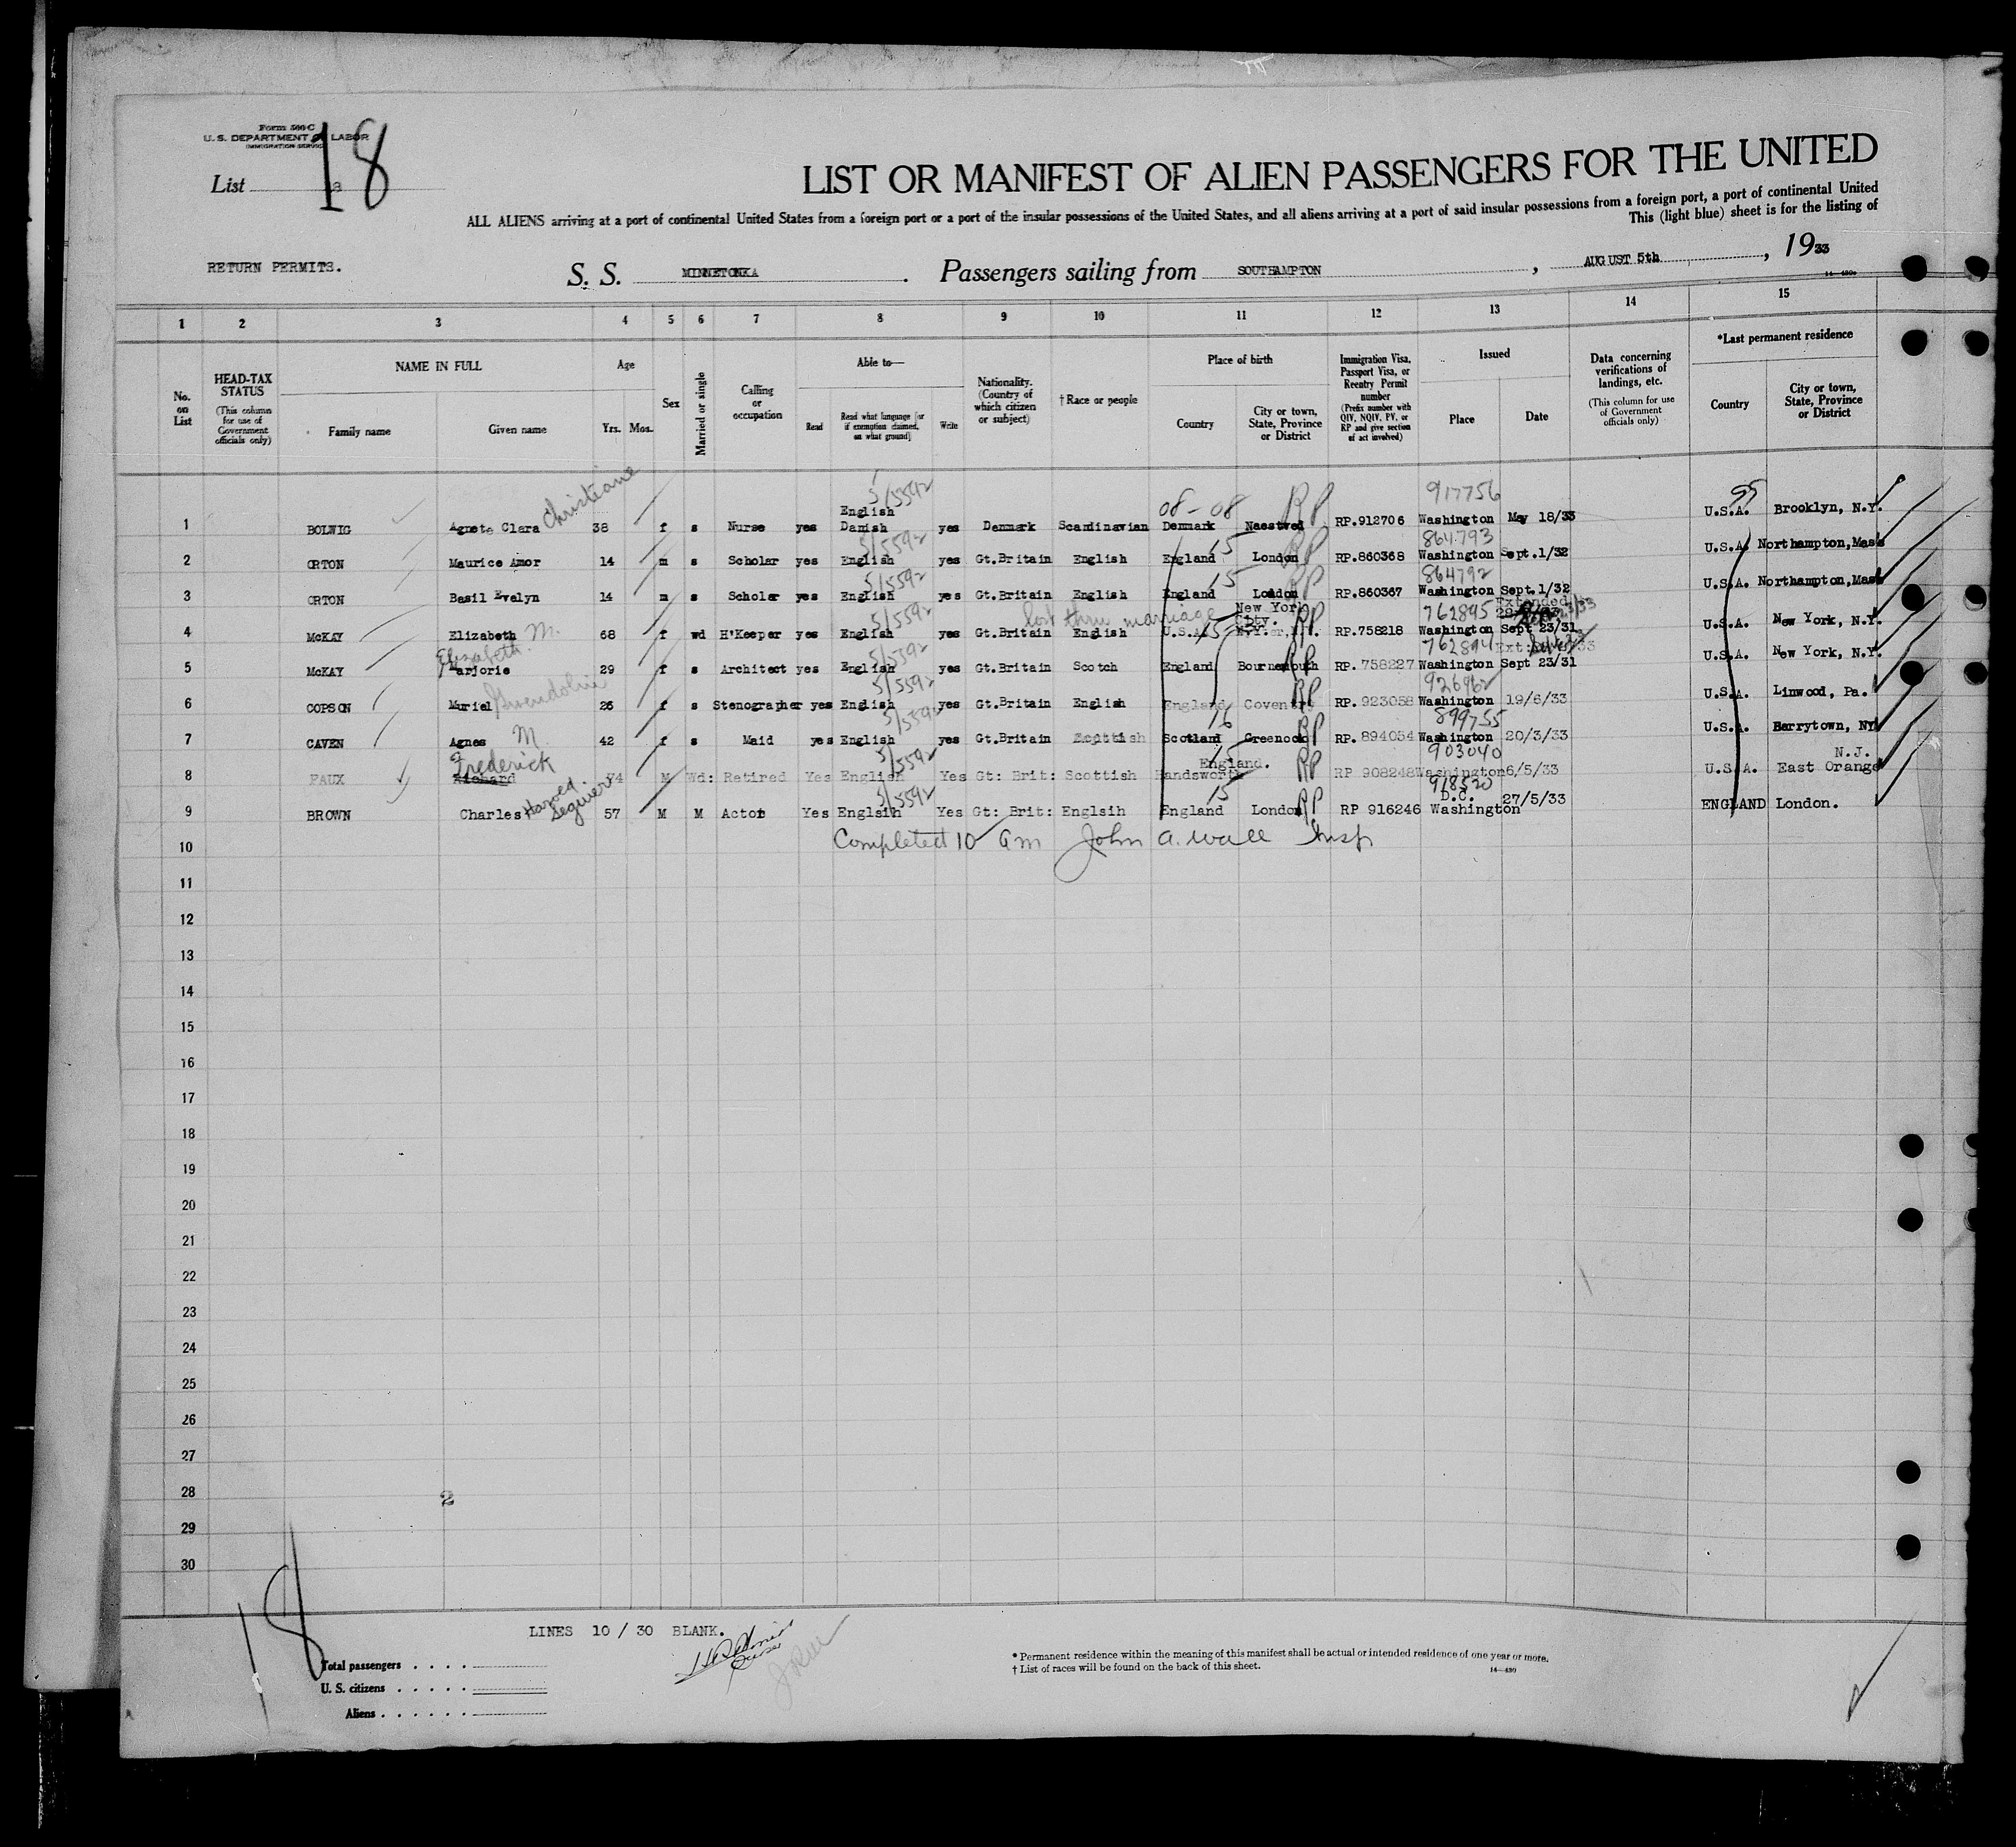 Form 500-C
U. S. DEPARTMENT OF LABOR
IMMIGRATION SERVICE
List 3
18
LIST OR MANIFEST OF ALIEN PASSENGERS FOR THE UNITED
ALL ALIENS arriving at a port of continental United States from a foreign port or a port of the insular possessions of the United States, and all aliens arriving at a port of said insular possessions from a foreign port, a port of continental United
This (light blue) sheet is for the listing of
RETURN PERMITS.
S. S. MINNETONKA. Passengers sailing from SOUTHAMPTON, AUGUST 5th, 1933
1 2 3 4 5 6 7 8 9 10 11 12 13 14 15
No. on List
HEAD-TAX STATUS (This column for use of Government officials only)
NAME IN FULL
Family name Given name
Age
Yrs. Mos.
Sex
Married or single
Calling or occupation
Able to—
Read
Read what language [or if exemption claimed, on what ground]
Write
Nationality. (Country of which citizen or subject)
†Race or people
Place of birth
Country
City or town, State, Province or District
Immigration Visa, Passport Visa, or Reentry Permit number (Prefix number with QIV, NQIV, PV, or RP and give section of act involved)
Issued
Place Date
Data concerning verifications of landings, etc. (This column for use of Government officials only)
*Last permanent residence
Country
City or town, State, Province or District
Christiane 5/5592 English 08-08 RP 917756 95
1 BOLWIG Agnete Clara 38 f s Nurse yes Danish yes Denmark Scandinavian Denmark Naestved RP.912706 Washington May 18/33 U.S.A. Brooklyn, N.Y.
5/5592 15 RP 864793
2 ORTON Maurice Amor 14 m s Scholar yes English yes Gt.Britain English England London RP.860368 Washington Sept.1/32 U.S.A. Northampton,Mass
5/5592 15 RP 864792
3 ORTON Basil Evelyn 14 m s Scholar yes English yes Gt.Britain English England London RP.860367 Washington Sept.1/32 U.S.A. Northampton,Mass
5/5592 lost thru marriage New York City. RP 762895 Extended
4 McKAY Elizabeth M. 68 f wd H'Keeper yes English yes Gt.Britain English U.S.A. 15 N.Y. RP.758218 Washington Sept 23/31 U.S.A. New York, N.Y.
Elizabeth 5/5592 RP 762894 Ext:
5 McKAY Marjorie 29 f s Architect yes English yes Gt.Britain Scotch England Bournemouth RP.758227 Washington Sept 23/31 U.S.A. New York, N.Y.
5/5592 RP 926962
6 COPSON Muriel Gwendoline 26 f s Stenographer yes English yes Gt.Britain English England Coventry RP.923058 Washington 19/6/33 U.S.A. Linwood, Pa.
5/5592 16 RP 899755
7 CAVEN Agnes M. 42 f s Maid yes English yes Gt.Britain Scottish Scotland Greenock RP.894054 Washington 20/3/33 U.S.A. Barrytown, NY
Frederick 5/5592 15 England. RP 903040 N.J.
8 FAUX Richard 74 M Wd: Retired Yes English Yes Gt: Brit: Scottish Handsworth RP 908248 Washington 6/5/33 U.S.A. East Orange
Harold Seguier 5/5592 15 RP 918520 D.C.
9 BROWN Charles 57 M M Actor Yes Englsih Yes Gt: Brit: Englsih England London RP 916246 Washington 27/5/33 ENGLAND London.
10 Completed 10 am John A. Wall Insp
11
12
13
14
15
16
17
18
19
20
21
22
23
24
25
26
27
28 2
29
30
18
LINES 10/30 BLANK.
Total passengers . . . .
U. S. citizens . . . . .
Aliens . . . . . .
* Permanent residence within the meaning of this manifest shall be actual or intended residence of one year or more.
† List of races will be found on the back of this sheet.
14—430